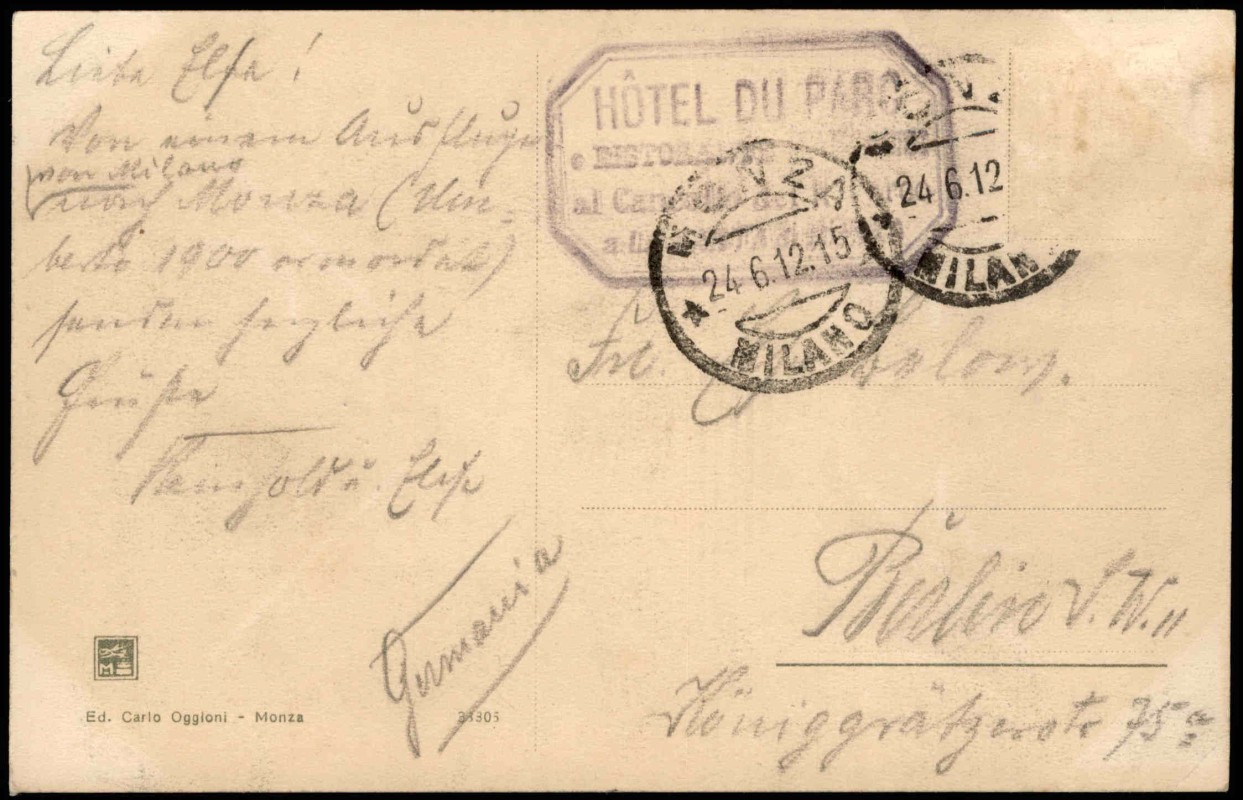 Liebe Else!
Von einem Ausfluge
von Milano
nach Monza (Um-
berto 1900 ermordet)
senden herzliche
Grüße
u. Else
Germania
HÔTEL DU PARC
e RISTORANTE
al
MONZA
24.6.12.15
MILANO
MONZA
24.6.12
MILANO
Frl.
Berlin S.W. 11
Königgrätzerstr 75a
M
Ed. Carlo Oggioni - Monza